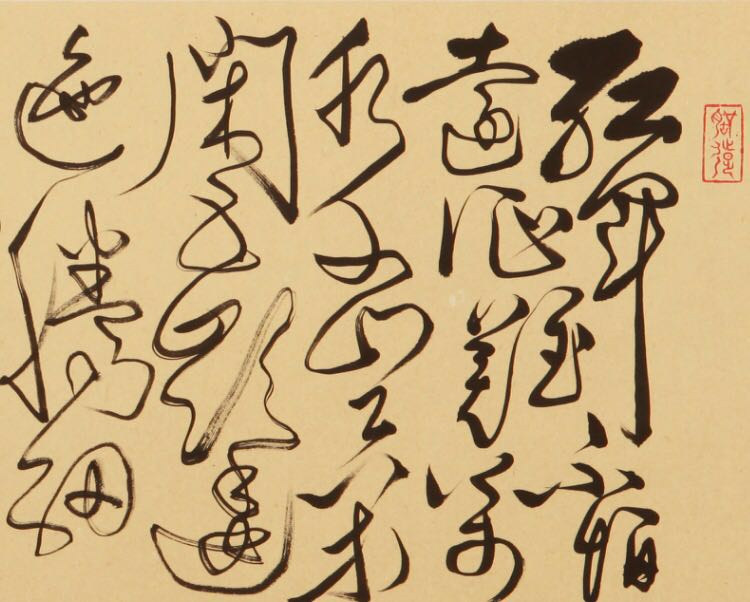 紅軍不怕
遠征難萬
水千山只等
閑五嶺逶
迤騰細